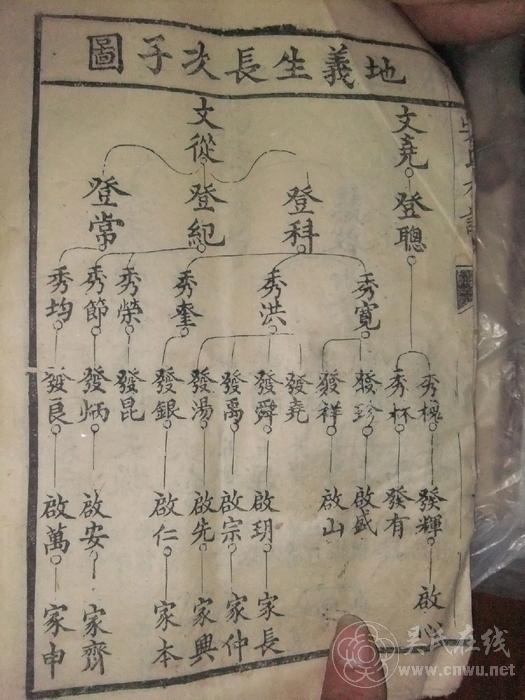 地義生長次子圖
文堯 文從
登聰 登科 登紀 登常
秀槐 秀杯 秀寬 秀洪 秀奎 秀榮 秀節 秀均
發珍 發祥 發堯 發舜 發禹 發湯 發銀 發昆 發炳 發良
發輝 發有 啟盛 啟山 啟玥 啟宗 啟先 啟仁 啟安 啟萬
啟心 家長 家仲 家興 家本 家齊 家申
吴氏在线
www.cnwu.net